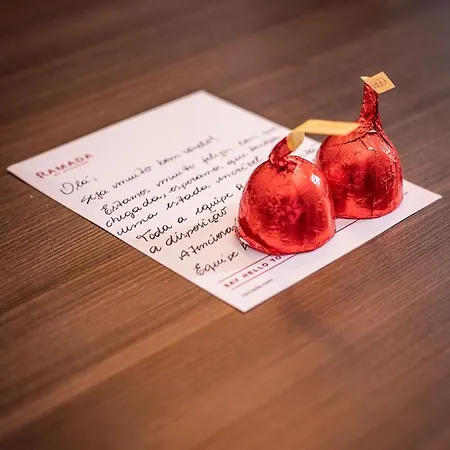 RAMADA
Olá,
Seja muito bem vindo!
Estamos muito felizes com sua
chegada, esperamos que tenham
uma estada incrível
Toda a equipe
a disposição
Equipe
SAY HELLO TO